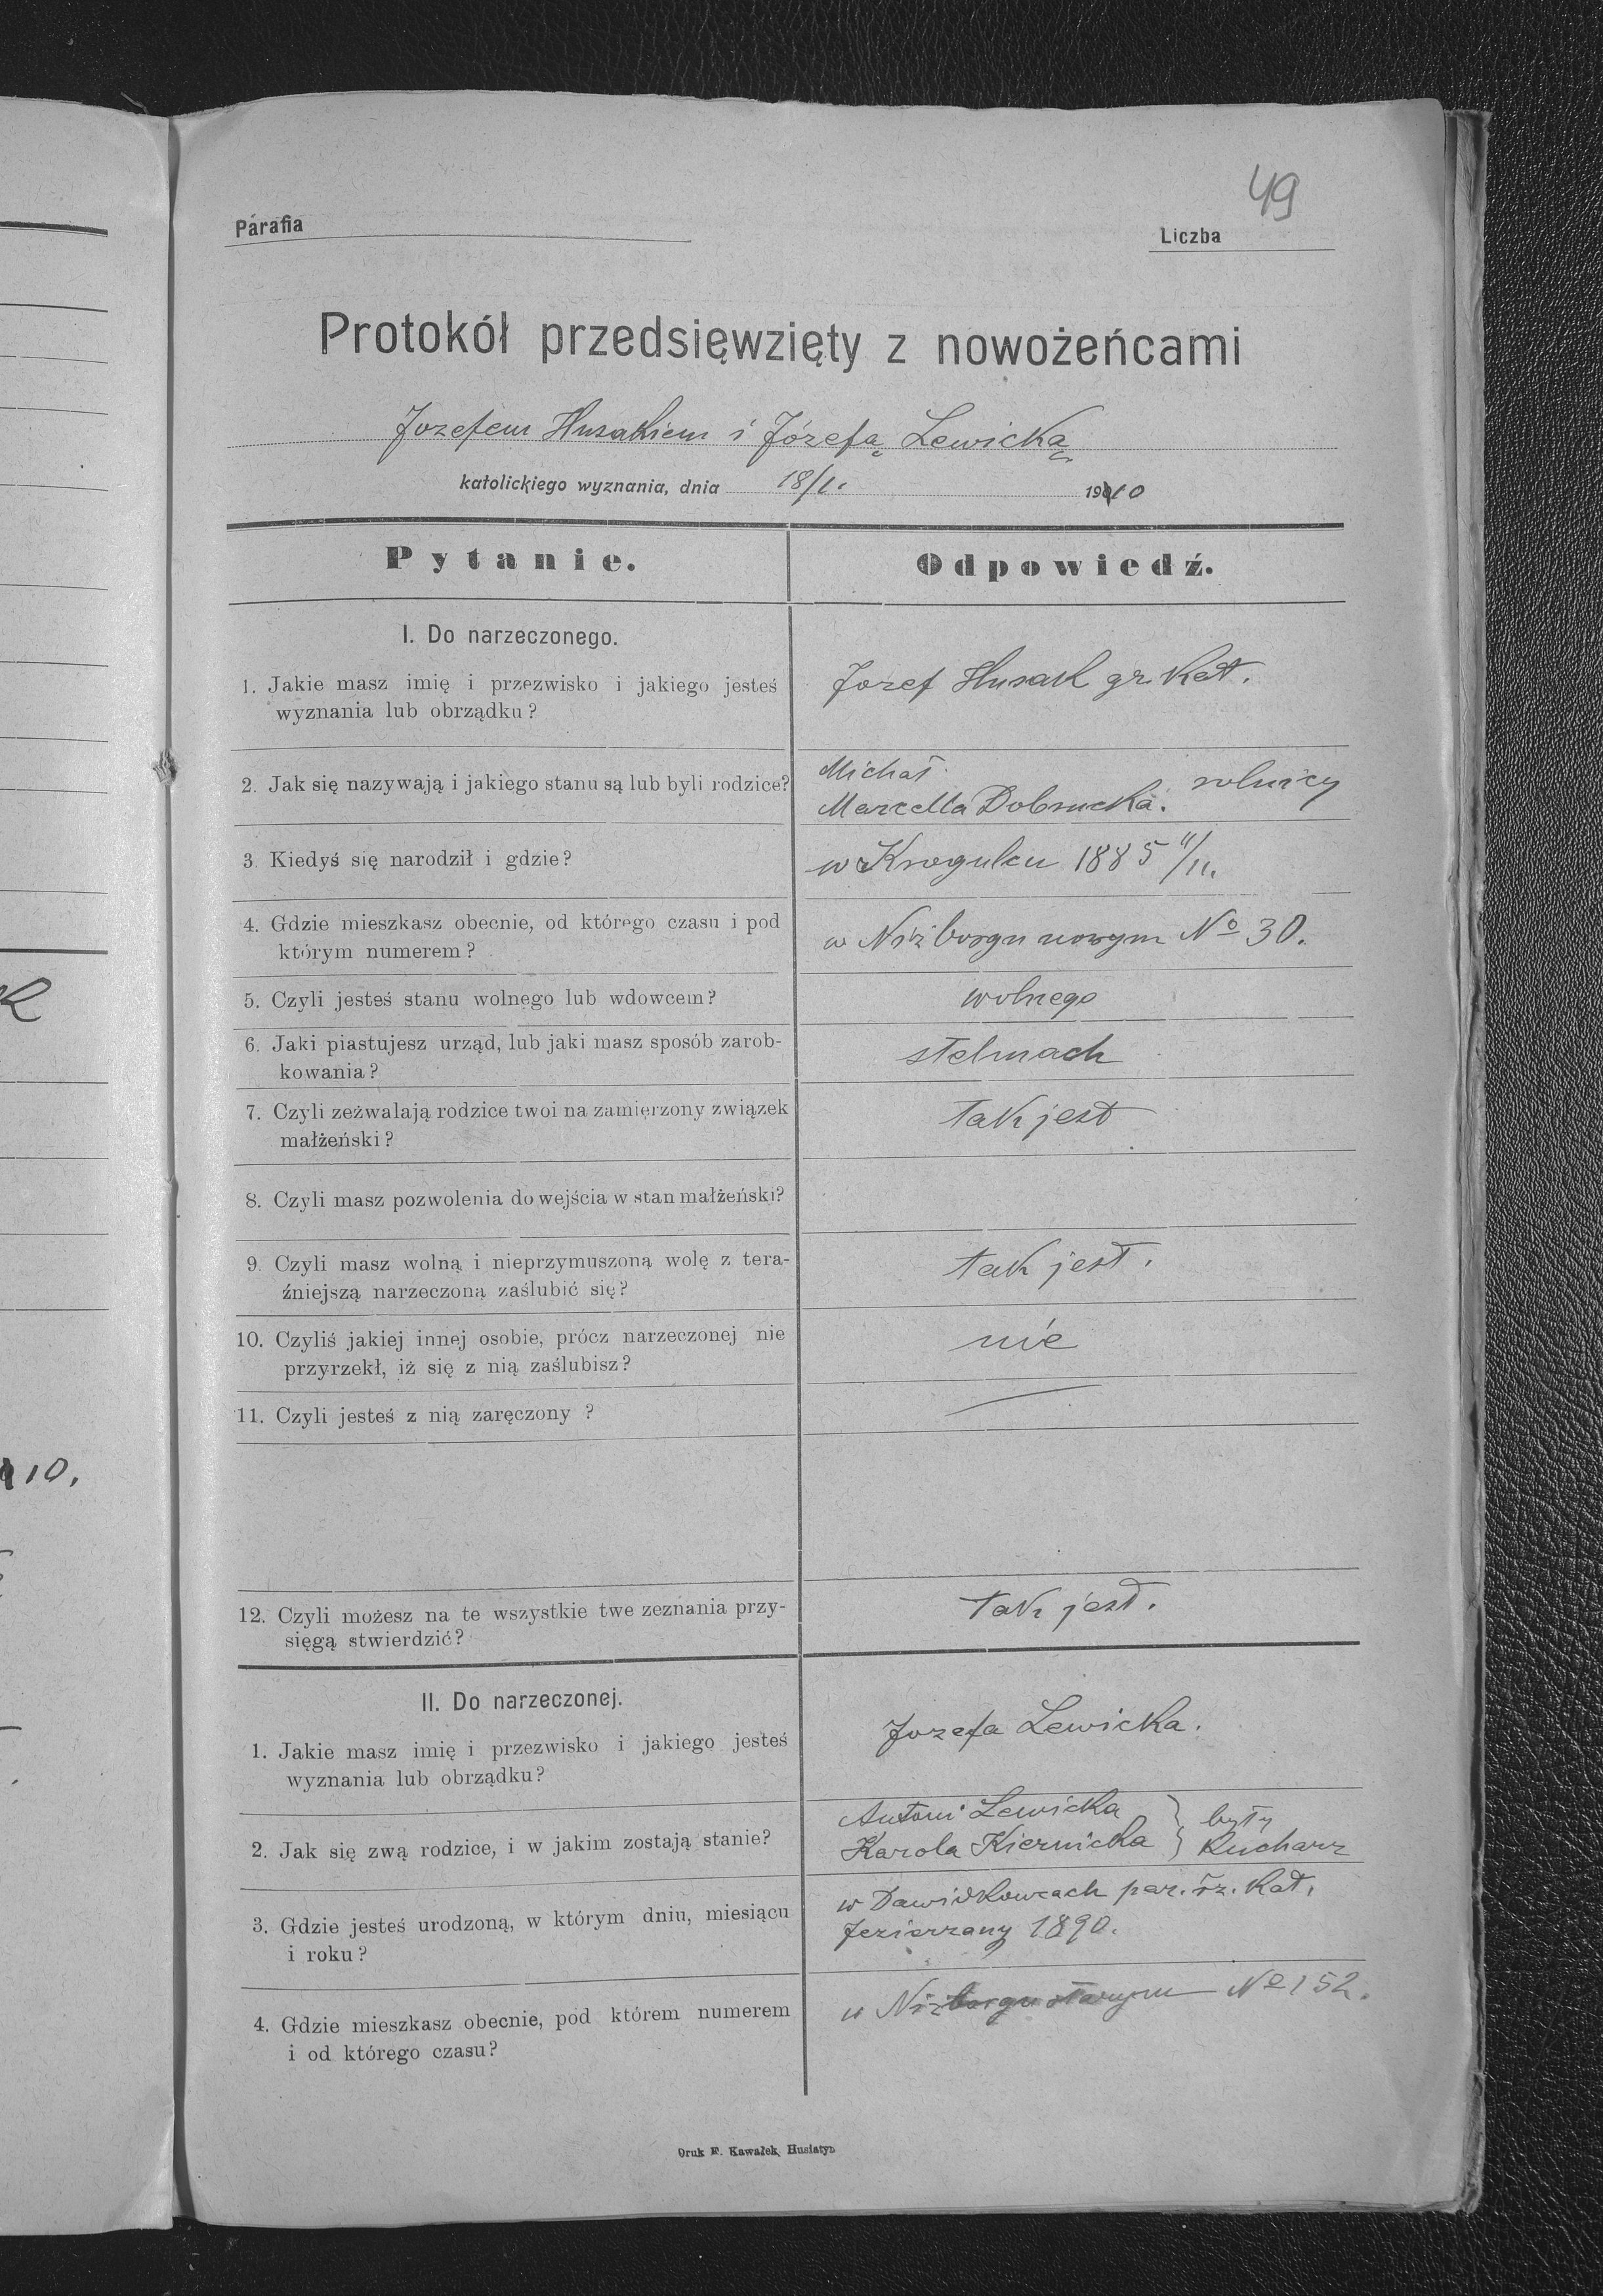 49
Parafia
Liczba
Protokół przedsięwzięty z nowożeńcami
Jozefem Husakiem i Józefą Lewicką
katolickiego wyznania, dnia 18/1. 1910
Pytanie.
Odpowiedź.
I. Do narzeczonego.
1. Jakie masz imię i przezwisko i jakiego jesteś
wyznania lub obrządku?
Jozef Husak gr. Kat.
2. Jak się nazywają i jakiego stanu są lub byli rodzice?
Michał
Marcella Dobrucka. rolnicy
3. Kiedyś się narodził i gdzie?
w Krogulcu 1885 11/11.
4. Gdzie mieszkasz obecnie, od którego czasu i pod
którym numerem?
w Niżborgu nowym No 30.
5. Czyli jesteś stanu wolnego lub wdowcem?
wolnego
6. Jaki piastujesz urząd, lub jaki masz sposób zarob-
kowania?
stelmach
7. Czyli zeżwalają rodzice twoi na zamierzony związek
małżeński?
Tak jest
8. Czyli masz pozwolenia do wejścia w stan małżeński?
9. Czyli masz wolną i nieprzymuszoną wolę z tera-
źniejszą narzeczoną zaślubić się?
tak jest.
10. Czyliś jakiej innej osobie, prócz narzeczonej nie
przyrzekł, iż się z nią zaślubisz?
nie
11. Czyli jesteś z nią zaręczony ?
12. Czyli możesz na te wszystkie twe zeznania przy-
sięgą stwierdzić?
Tak jest.
II. Do narzeczonej.
1. Jakie masz imię i przezwisko i jakiego jesteś
wyznania lub obrządku?
Jozefa Lewicka.
2. Jak się zwą rodzice, i w jakim zostają stanie?
Antoni Lewicka } były
Karola Kiernicka } Kucharz
3. Gdzie jesteś urodzoną, w którym dniu, miesiącu
i roku?
w Dawidkowcach par. rz. Kat.
Jezierzany 1890.
4. Gdzie mieszkasz obecnie, pod którem numerem
i od którego czasu?
w Niżborgu starym No 152.
Druk F. Kawałek Husiatyn
10.